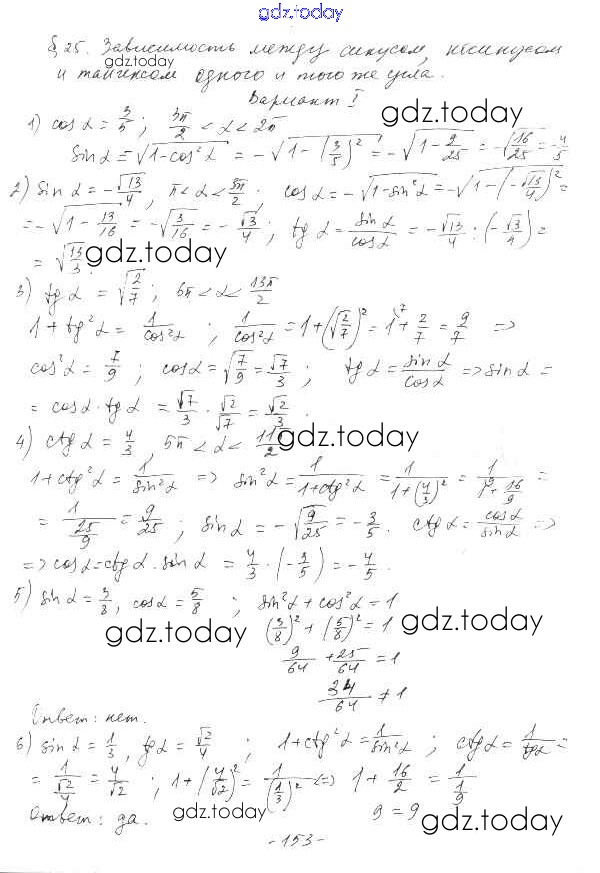 gdz.today
§ 25. Зависимость между синусом, косинусом
gdz.today
и тангенсом одного и того же угла.
Вариант I
gdz.today
1) cos α = 3/5 ; 3π/2 < α < 2π
sin α = -√(1-cos² α) = -√(1-(3/5)²) = -√(1-9/25) = -√(16/25) = -4/5
2) sin α = -√13/4 , π < α < 3π/2 . cos α = -√(1-sin² α) = -√(1-(-√13/4)²) =
= -√(1-13/16) = -√(3/16) = -√3/4 ; tg α = sin α/cos α = -√13/4 : (-√3/4) =
gdz.today
= √(13/3) .
3) tg α = √(2/7) ; 6π < α < 13π/2
1 + tg² α = 1/cos² α ; 1/cos² α = 1 + (√(2/7))² = 1 + 2/7 = 9/7 =>
cos² α = 7/9 ; cos α = √(7/9) = √7/3 ; tg α = sin α/cos α => sin α =
= cos α · tg α = √7/3 · √2/√7 = √2/3 .
gdz.today
4) ctg α = 4/3 , 5π < α < 11π/2
1 + ctg² α = 1/sin² α => sin² α = 1/(1+ctg² α) = 1/(1+(4/3)²) = 1/(1+16/9) =
= 1/(25/9) = 9/25 ; sin α = -√(9/25) = -3/5 . ctg α = cos α/sin α =>
=> cos α = ctg α · sin α = 4/3 · (-3/5) = -4/5 .
5) sin α = 3/8 , cos α = 5/8 ; sin² α + cos² α = 1
gdz.today
gdz.today
(3/8)² + (5/8)² = 1
9/64 + 25/64 = 1
34/64 ≠ 1
Ответ: нет.
6) sin α = 1/3 , tg α = √2/4 ; 1 + ctg² α = 1/sin² α ; ctg α = 1/tg α =
= 1/(√2/4) = 4/√2 ; 1 + (4/√2)² = 1/(1/3)² <=> 1 + 16/2 = 1/(1/9)
Ответ: да. 9 = 9
gdz.today
gdz.today
- 153 -